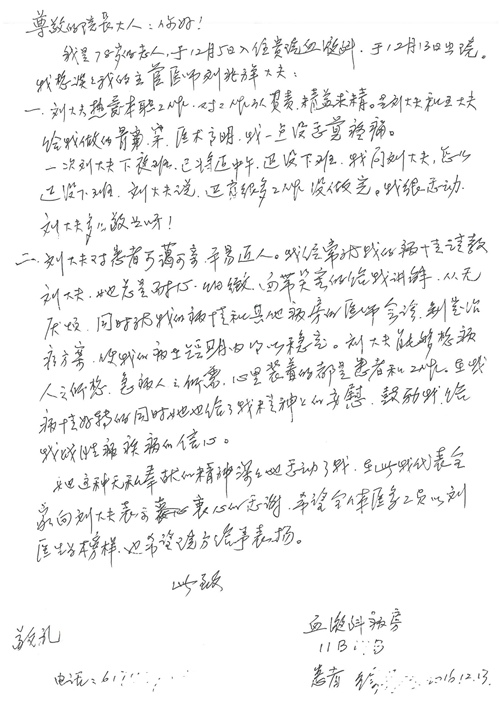 尊敬的院长大人：你好！
我是78岁的老人，于12月5日入住贵院血液科，于12月13日出院。
我想谈谈我的主管医师刘兆祥大夫：
一、刘大夫热爱本职工作，对工作认真负责，精益求精。是刘大夫和王大夫
给我做的骨穿，医术高明，我一点没感觉疼痛。
一次刘大夫下夜班，已将近中午，还没下班，我问刘大夫，怎么
还没下班，刘大夫说，还有很多工作没做完。我很感动，
刘大夫多么敬业呀！
二、刘大夫对患者可蔼可亲，平易近人。我经常找我的病情请教
刘大夫，她总是耐心、细緻、面带笑容的给我讲解，从无
厌烦，同时把我的病情和其他病房的医师会诊，制定治
疗方案，使我的病在短期内得以稳定。刘大夫能够想病
人之所想，急病人之所需，心里装着的都是患者和工作。在我
病情好转的同时她也给了我精神上的安慰，鼓励我给
我战胜疾病的信心。
她这种无私奉献的精神深深地感动了我，在此我代表全
家向刘大夫表示衷心的感谢，希望全体医务工员以刘
医生为榜样，也希望院方给予表扬。
此致
敬礼
血液科病房
11B
电话：61
患者 2016.12.13